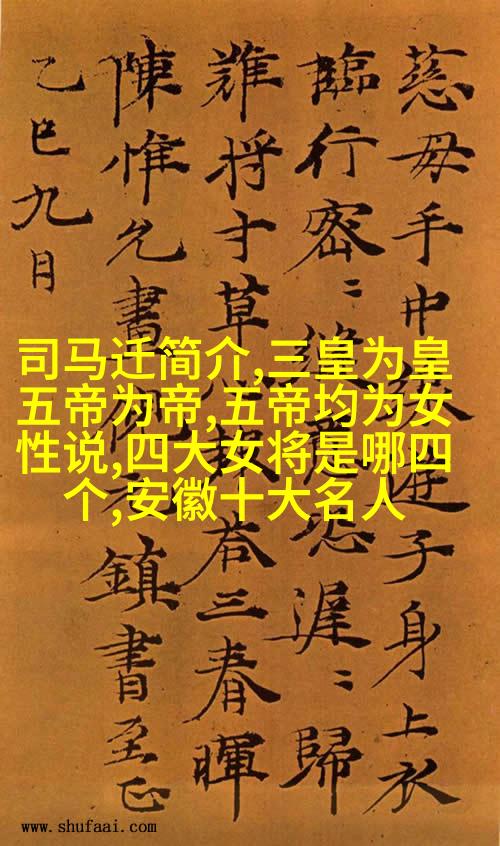 慈母手中線遊子身上衣
臨行密〻縫意恐遲〻歸
難将寸草心報荅三春暉
陳惟允書 鎮書至正
乙巳九月
司马迁简介,三皇为皇
五帝为帝,五帝均为女
性说,四大女将是哪四
个,安徽十大名人
www.shufaai.com